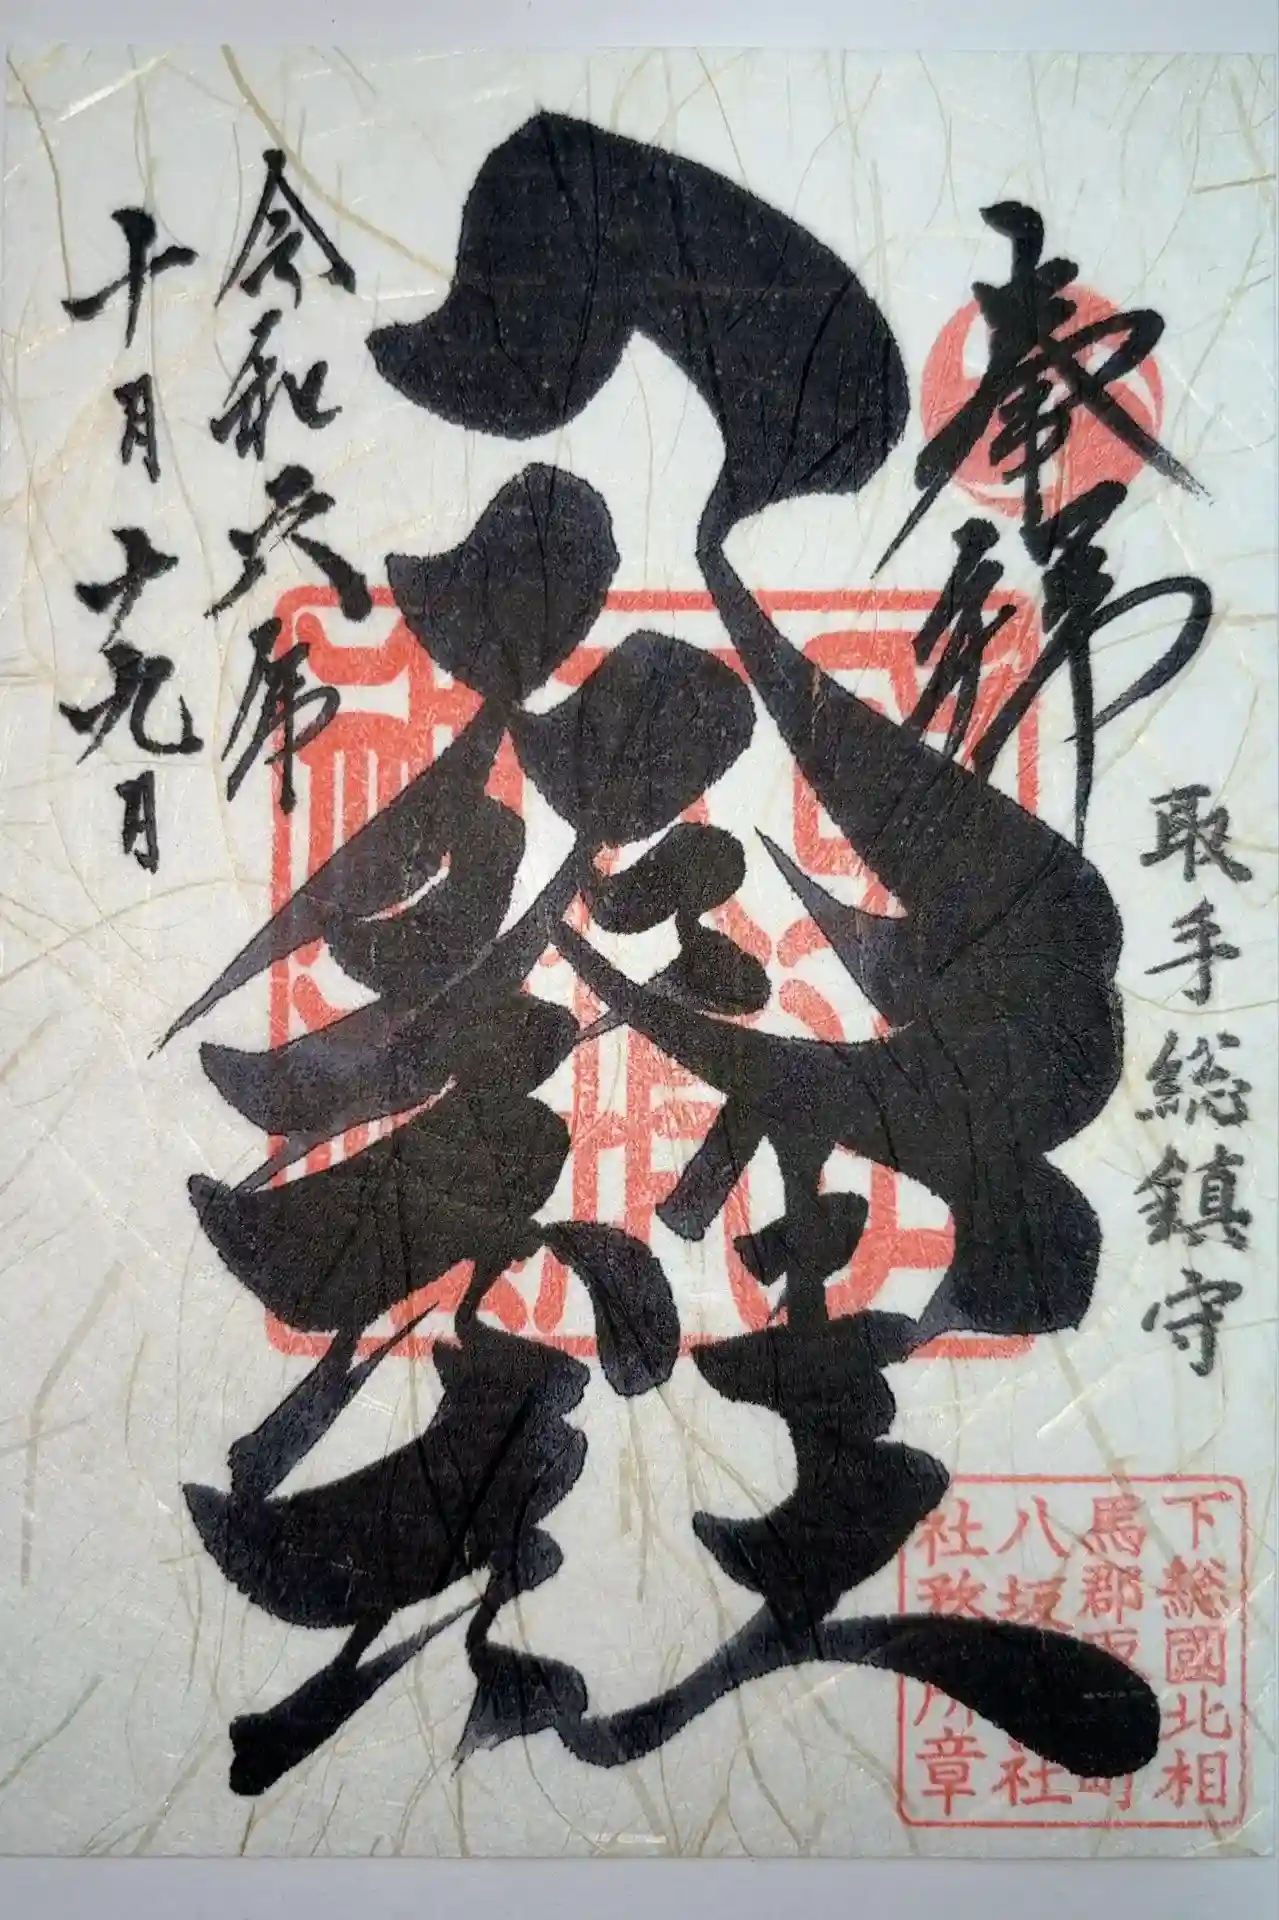 奉拝
取手総鎮守
八坂神社
令和六年
十月十九日
下総國北相
馬郡取手町
八坂神社
社務所章